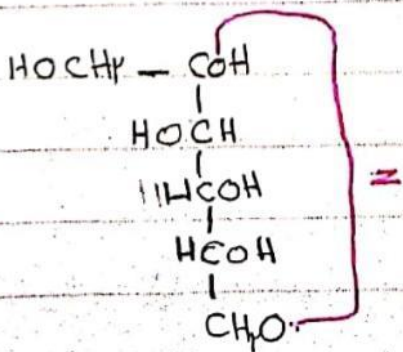 HOCH۲ — COH
HOCH
HCOH
HCOH
CH۲O
=